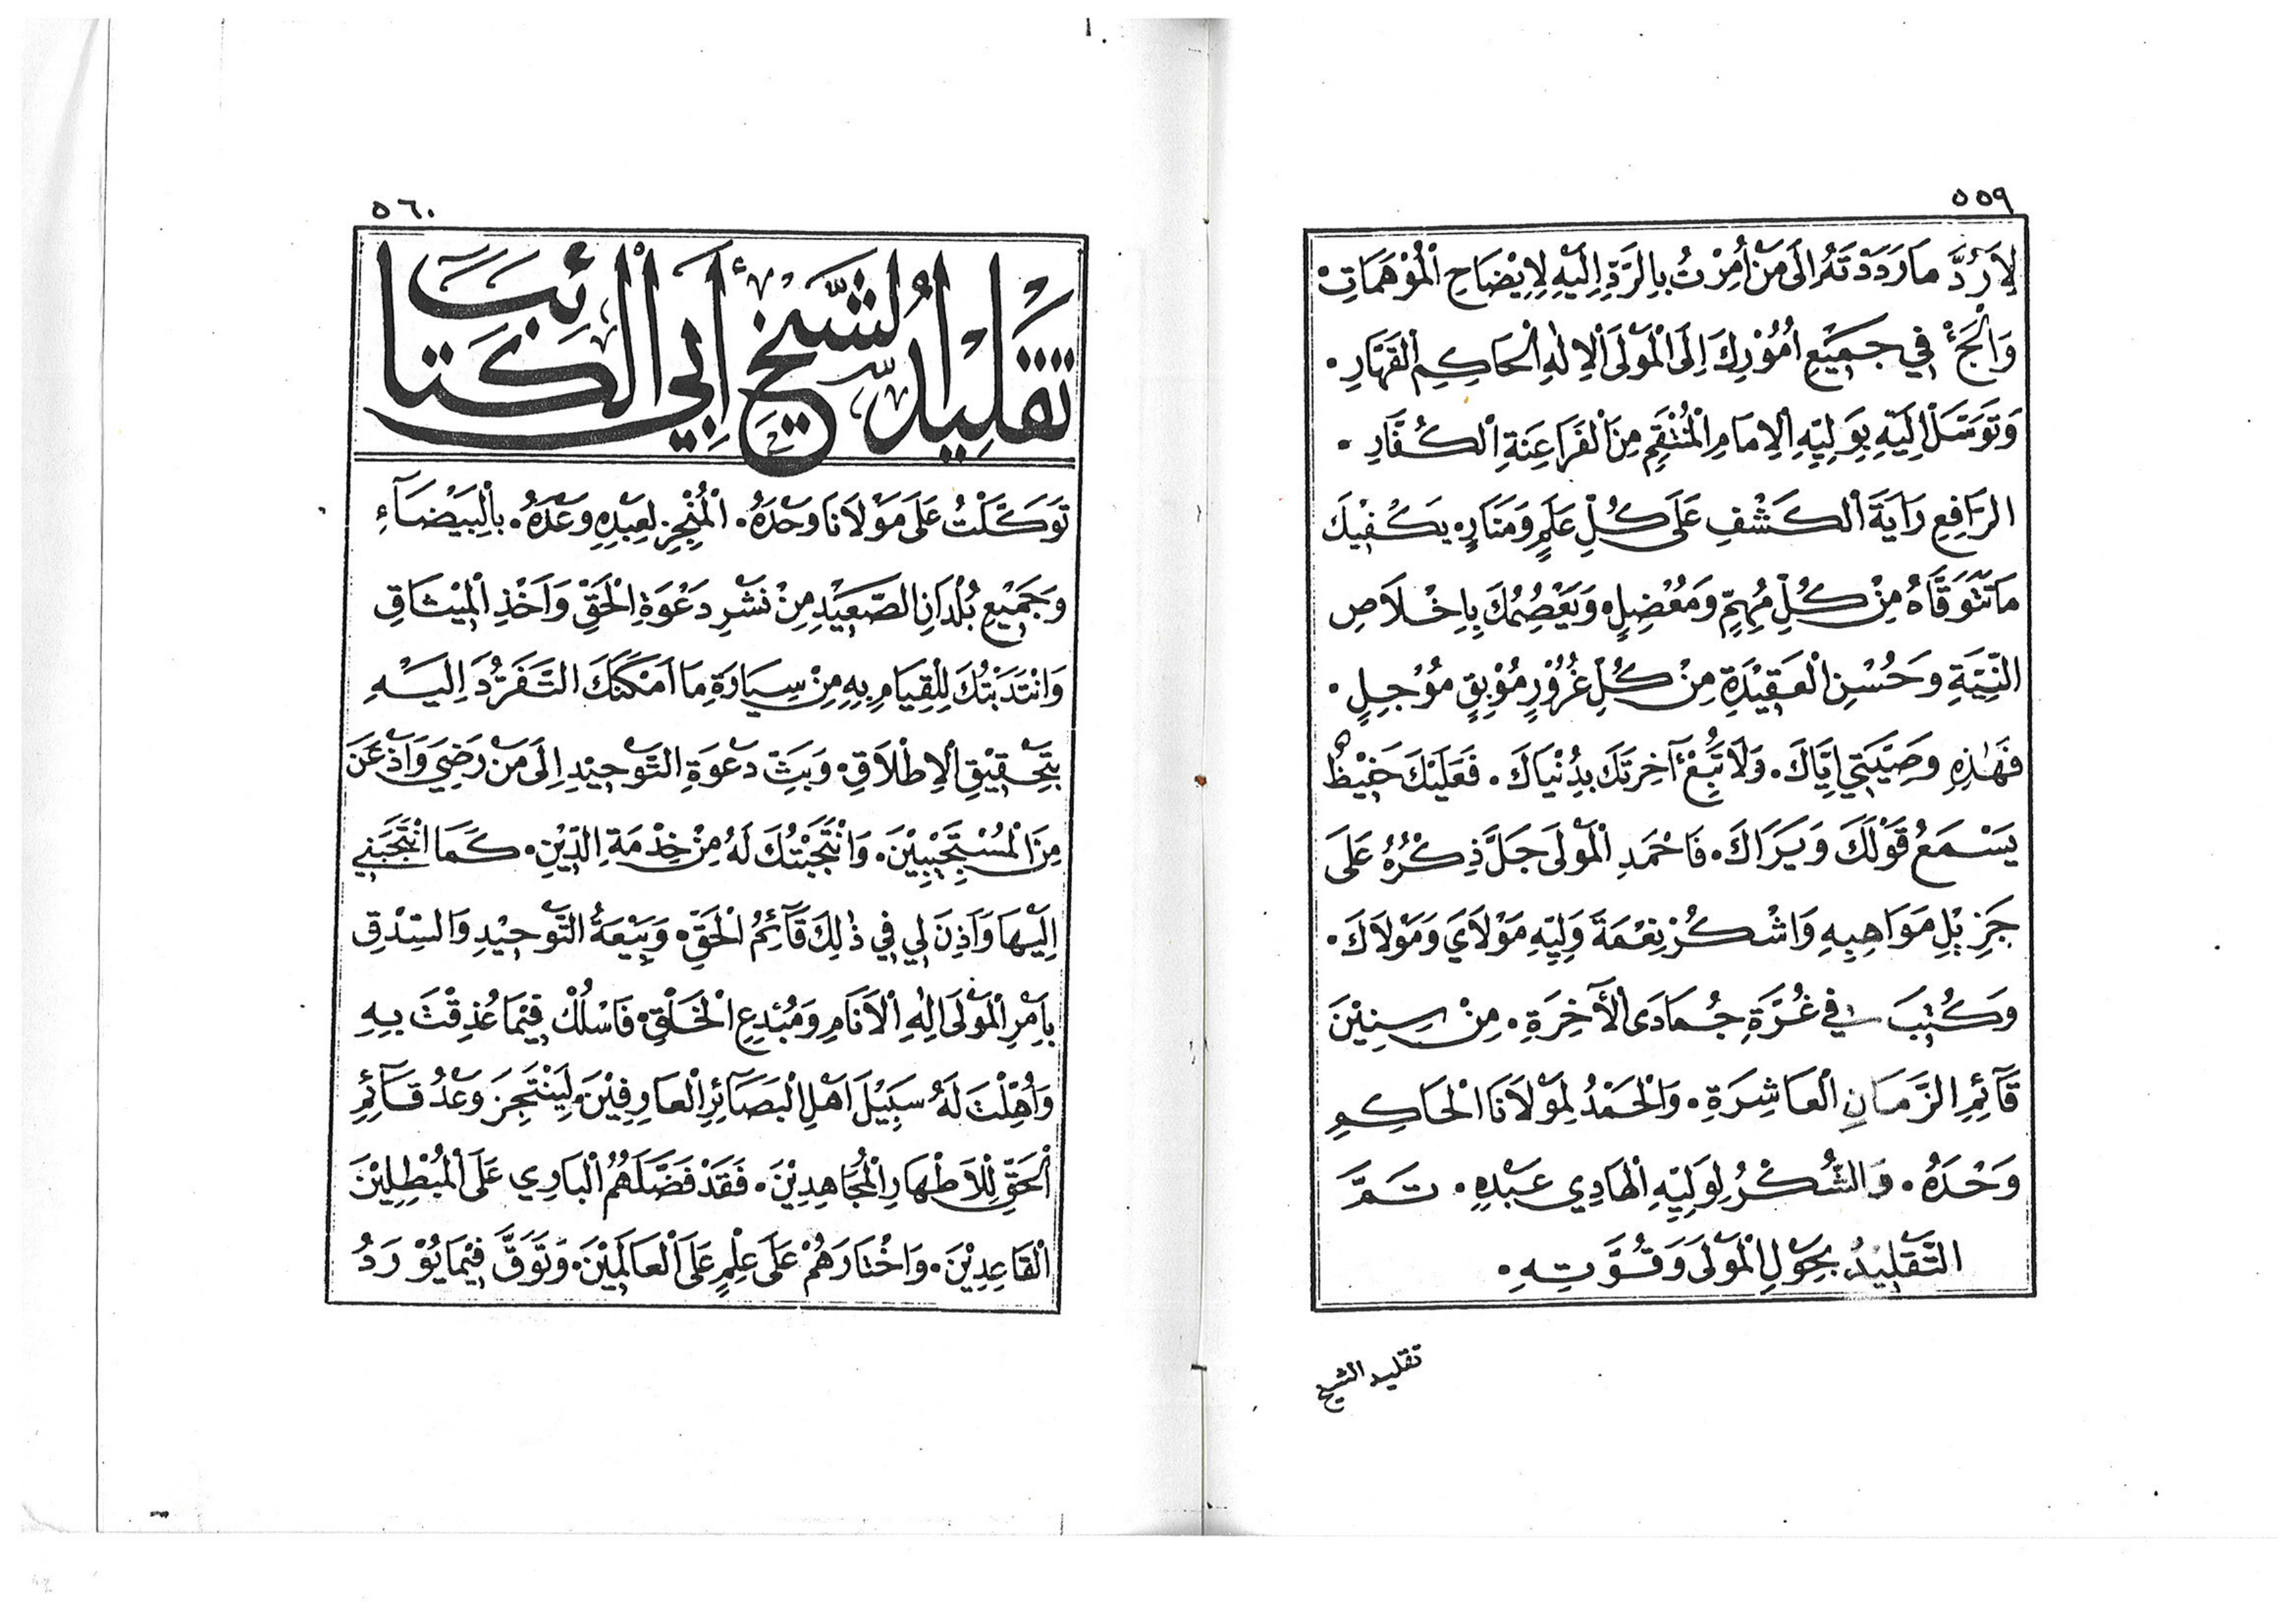 ٥٥٩
لِأَرُدَّ مَا رَدَدْتَهُ إِلَى مَنْ أُمِرْتُ بِالرَّدِّ إِلَيْهِ لِإِيْضَاحِ الْمُوْهَمَاتِ
وَالْجَأْ فِي جَمِيْعِ أُمُوْرِكَ إِلَى الْمَوْلَى الْإِلٰهِ الْحَاكِمِ الْقَهَّارِ.
وَتَوَسَّلْ إِلَيْهِ بِوَلِيِّهِ الْإِمَامِ الْمُنْتَقِمِ مِنَ الْفَرَاعِنَةِ الْكُفَّارِ.
الرَّافِعِ رَايَةَ الْكَشْفِ عَلَى كُلِّ عَلَمٍ وَمَنَارٍ. يَكْفِيْكَ
مَا تَتَوَقَّاهُ مِنْ كُلِّ مُهِمٍّ وَمُعْضِلٍ. وَيَعْصِمُكَ بِإِخْلَاصِ
النِّيَّةِ وَحُسْنِ الْعَقِيْدَةِ مِنْ كُلِّ غُرُوْرٍ مُوْبِقٍ مُوْجِلٍ.
فَهٰذِهِ وَصِيَّتِي إِيَّاكَ. وَلَا تَبِعْ آخِرَتَكَ بِدُنْيَاكَ. فَعَلَيْكَ حَفِيْظٌ
يَسْمَعُ قَوْلَكَ وَيَرَاكَ. فَاحْمَدِ الْمَوْلَى جَلَّ ذِكْرُهُ عَلَى
جَزِيْلِ مَوَاهِبِهِ وَاشْكُرْ نِعْمَةَ وَلِيِّهِ مَوْلَايَ وَمَوْلَاكَ.
وَكُتِبَ فِي غُرَّةِ جُمَادَى الْآخِرَةِ. مِنْ سِنِيْنَ
قَآئِمِ الزَّمَانِ الْعَاشِرَةِ. وَالْحَمْدُ لِمَوْلَانَا الْحَاكِمِ
وَحْدَهُ. وَالشُّكْرُ لِوَلِيِّهِ الْهَادِي عَبْدِهِ. تَمَّ
التَّقْلِيْدُ بِحَوْلِ الْمَوْلَى وَقُوَّتِهِ.
تقليد الشيخ
٥٦٠
تَقْلِيْدُ الشَّيْخِ أَبِي الْكَتَائِبِ
تَوَكَّلْتُ عَلَى مَوْلَانَا وَحْدَهُ. الْمُنْجِزِ لِعَبْدِهِ وَعْدَهُ. بِالْبَيْضَآءِ
وَجَمِيْعِ بُلْدَانِ الصَّعِيْدِ مِنْ نَشْرِ دَعْوَةِ الْحَقِّ وَأَخْذِ الْمِيْثَاقِ
وَانْتَدَبْتُكَ لِلْقِيَامِ بِهِ مِنْ سِيَارَةِ مَا أَمْكَنَكَ التَّفَرُّدَ إِلَيْهِ
بِتَحْقِيْقِ الْإِطْلَاقِ. وَبَثِّ دَعْوَةِ التَّوْحِيْدِ إِلَى مَنْ رَضِيَ وَأَذْعَنَ
مِنَ الْمُسْتَجِيْبِيْنَ. وَانْتَجَبْتُكَ لَهُ مِنْ خِدْمَةِ الدِّيْنِ. كَمَا انْتَجَبَنِي
إِلَيْهَا وَأَذِنَ لِي فِي ذٰلِكَ قَآئِمُ الْحَقِّ. وَبَيْعَةُ التَّوْحِيْدِ وَالسِّدْقِ
بِأَمْرِ الْمَوْلَى إِلٰهِ الْأَنَامِ وَمُبْدِعِ الْخَلْقِ. فَاسْلُكْ فِيْمَا عُذِقْتَ بِهِ
وَأُهِّلْتَ لَهُ سَبِيْلَ أَهْلِ الْبَصَآئِرِ الْعَارِفِيْنَ. لِيَنْتَجِزَ وَعْدُ قَآئِمِ
الْحَقِّ لِلْأَطْهَارِ الْمُجَاهِدِيْنَ. فَقَدْ فَضَّلَهُمُ الْبَارِي عَلَى الْمُبْطِلِيْنَ
الْقَاعِدِيْنَ. وَاخْتَارَهُمْ عَلَى عِلْمٍ عَلَى الْعَالَمِيْنَ. وَتَوَقَّ فِيْمَا يُوْرَدُ